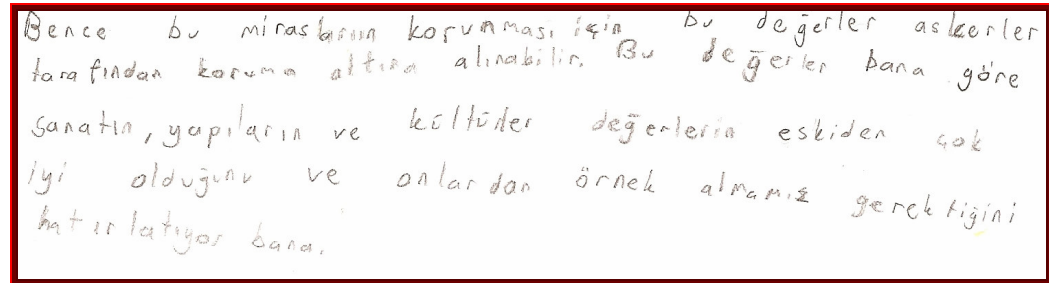 Bence bu mirasların korunması için bu değerler askerler
tarafından koruma altına alınabilir. Bu değerler bana göre
sanatın, yapıların ve kültürler değerlerin eskiden çok
iyi olduğunu ve onlardan örnek almamız gerektiğini
hatırlatıyor bana.